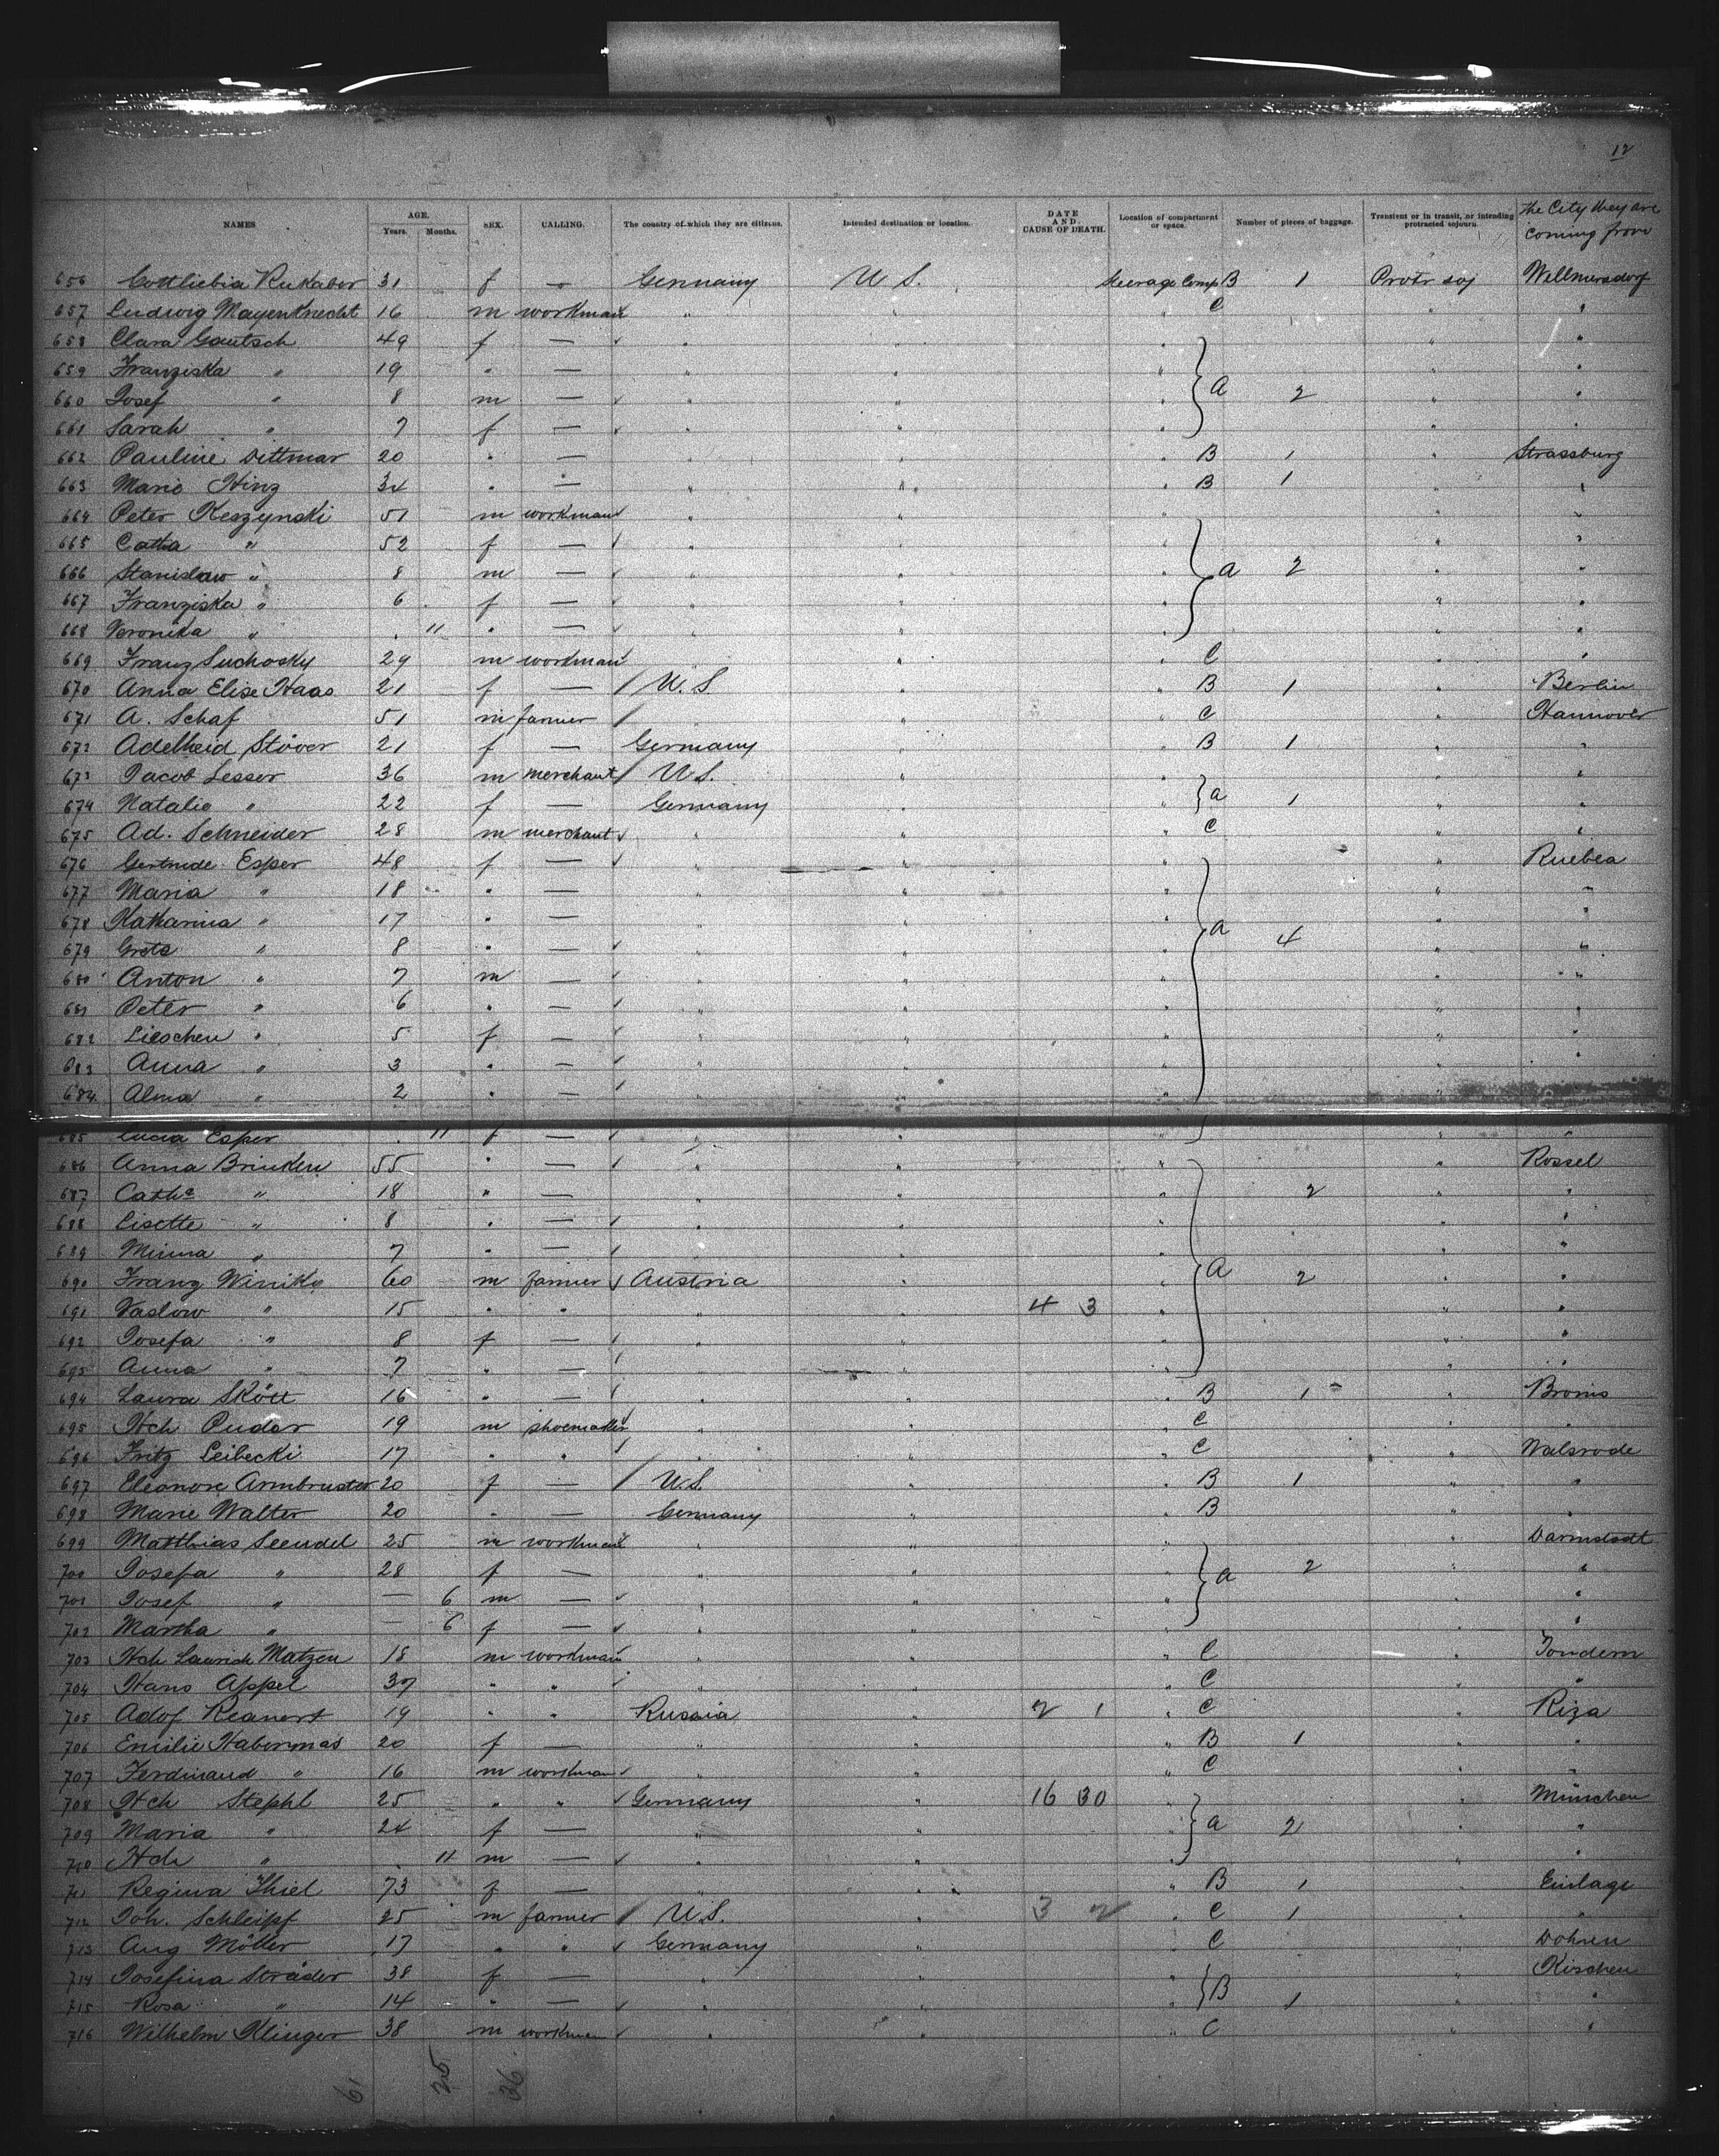 12
NAMES AGE. Years. Months. SEX. CALLING. The country of which they are citizens. Intended destination or location. DATE AND CAUSE OF DEATH. Location of compartment or space. Number of pieces of baggage. Transient or in transit, or intending protracted sojourn. the City they are coming from
656 Gottliebia Rukaber 31 f — Germany U S. Steerage Comp B 1 Protr soj Willmersdorf
657 Ludwig Mayenknecht 16 m workman " " " C " "
658 Clara Gautsch 49 f — " " " " "
659 Franziska " 19 " — " " " " "
660 Josef " 8 m — " " " A 2 " "
661 Sarah " 7 f — " " " " "
662 Pauline Dittmar 20 " — " " " B 1 " Strassburg
663 Marie Hinz 34 " — " " " B 1 " "
664 Peter Keszynski 51 m workman " " " " "
665 Catha " 52 f — " " " " "
666 Stanislaw " 8 m — " " " A 2 " "
667 Franziska " 6 f — " " " " "
668 Veronika " . 11 " — " " " " "
669 Franz Suchosky 29 m workman " " " C " "
670 Anna Elise Haas 21 f — U.S " " B 1 " Berlin
671 A. Schaf 51 m farmer " " C " Hannover
672 Adelheid Stöver 21 f — Germany " " B 1 " "
673 Jacob Lesser 36 m merchant U.S. " " " "
674 Natalie " 22 f — Germany " " a 1 " "
675 Ad. Schneider 28 m merchant " " " C " "
676 Gertrude Esper 48 f — " " " " Ruebea
677 Maria " 18 " — " " " " "
678 Katharina " 17 " — " " " a 4 " "
679 Grete " 8 " — " " " " "
680 Anton " 7 m — " " " " "
681 Peter " 6 " — " " " " "
682 Lieschen " 5 f — " " " " "
683 Anna " 3 " — " " " " "
684. Alma " 2 " — " " " " "
685 Lucia Esper . 11 f — " " " " "
686 Anna Brinken 55 " — " " " " Rossel
687 Cathe " 18 " — " " " 2 " "
688 Lisette " 8 " — " " " " "
689 Minna " 7 " — " " " " "
690 Franz Winiky 60 m farmer Austria " " A 2 " "
691 Vaslow " 15 " " " " 4 3 " " "
692 Josefa " 8 f — " " " " "
693 Anna " 7 " — " " " " "
694 Laura Skött 16 " — " " " B 1 "
695 Hch Pudor 19 m shoemaker " " " C " "
696 Fritz Leibecki 17 " " " " " C " Walsrode
697 Eleonore Armbruster 20 f — U.S. " " B 1 " "
698 Marie Walter 20 " — Germany " " B " "
699 Matthias Seendel 25 m workman " " " " Darmstadt
700 Josefa " 28 f — " " " a 2 " "
701 Josef " — 6 m — " " " " "
702 Martha " — 6 f — " " " " "
703 Hch Laurids Matzen 18 m workman " " " C " Tondern
704 Hans Appel 37 " " " " " C " "
705 Adof Reanert 19 " " Russia " 2 1 " C " Riga
706 Emilie Habermas 20 f — " " " B 1 " "
707 Ferdinand " 16 m workman " " " C " "
708 Hch Stephl 25 " " Germany " 16 30 " " München
709 Maria " 24 f — " " " a 2 " "
710 Hch " . 11 m — " " " " "
711 Regina Thiel 73 f — " " " B 1 " Einlage
712 Joh. Schleipf 25 m farmer U.S. " 3 2 " C 1 " "
713 Aug Möller 17 " " Germany " " C " Dohren
714 Josefina Sträder 38 f — " " " " Kirschen
715 Rosa " 14 " — " " " B 1 " "
716 Wilhelm Klinger 38 m workman " " " C " "
61 25 36